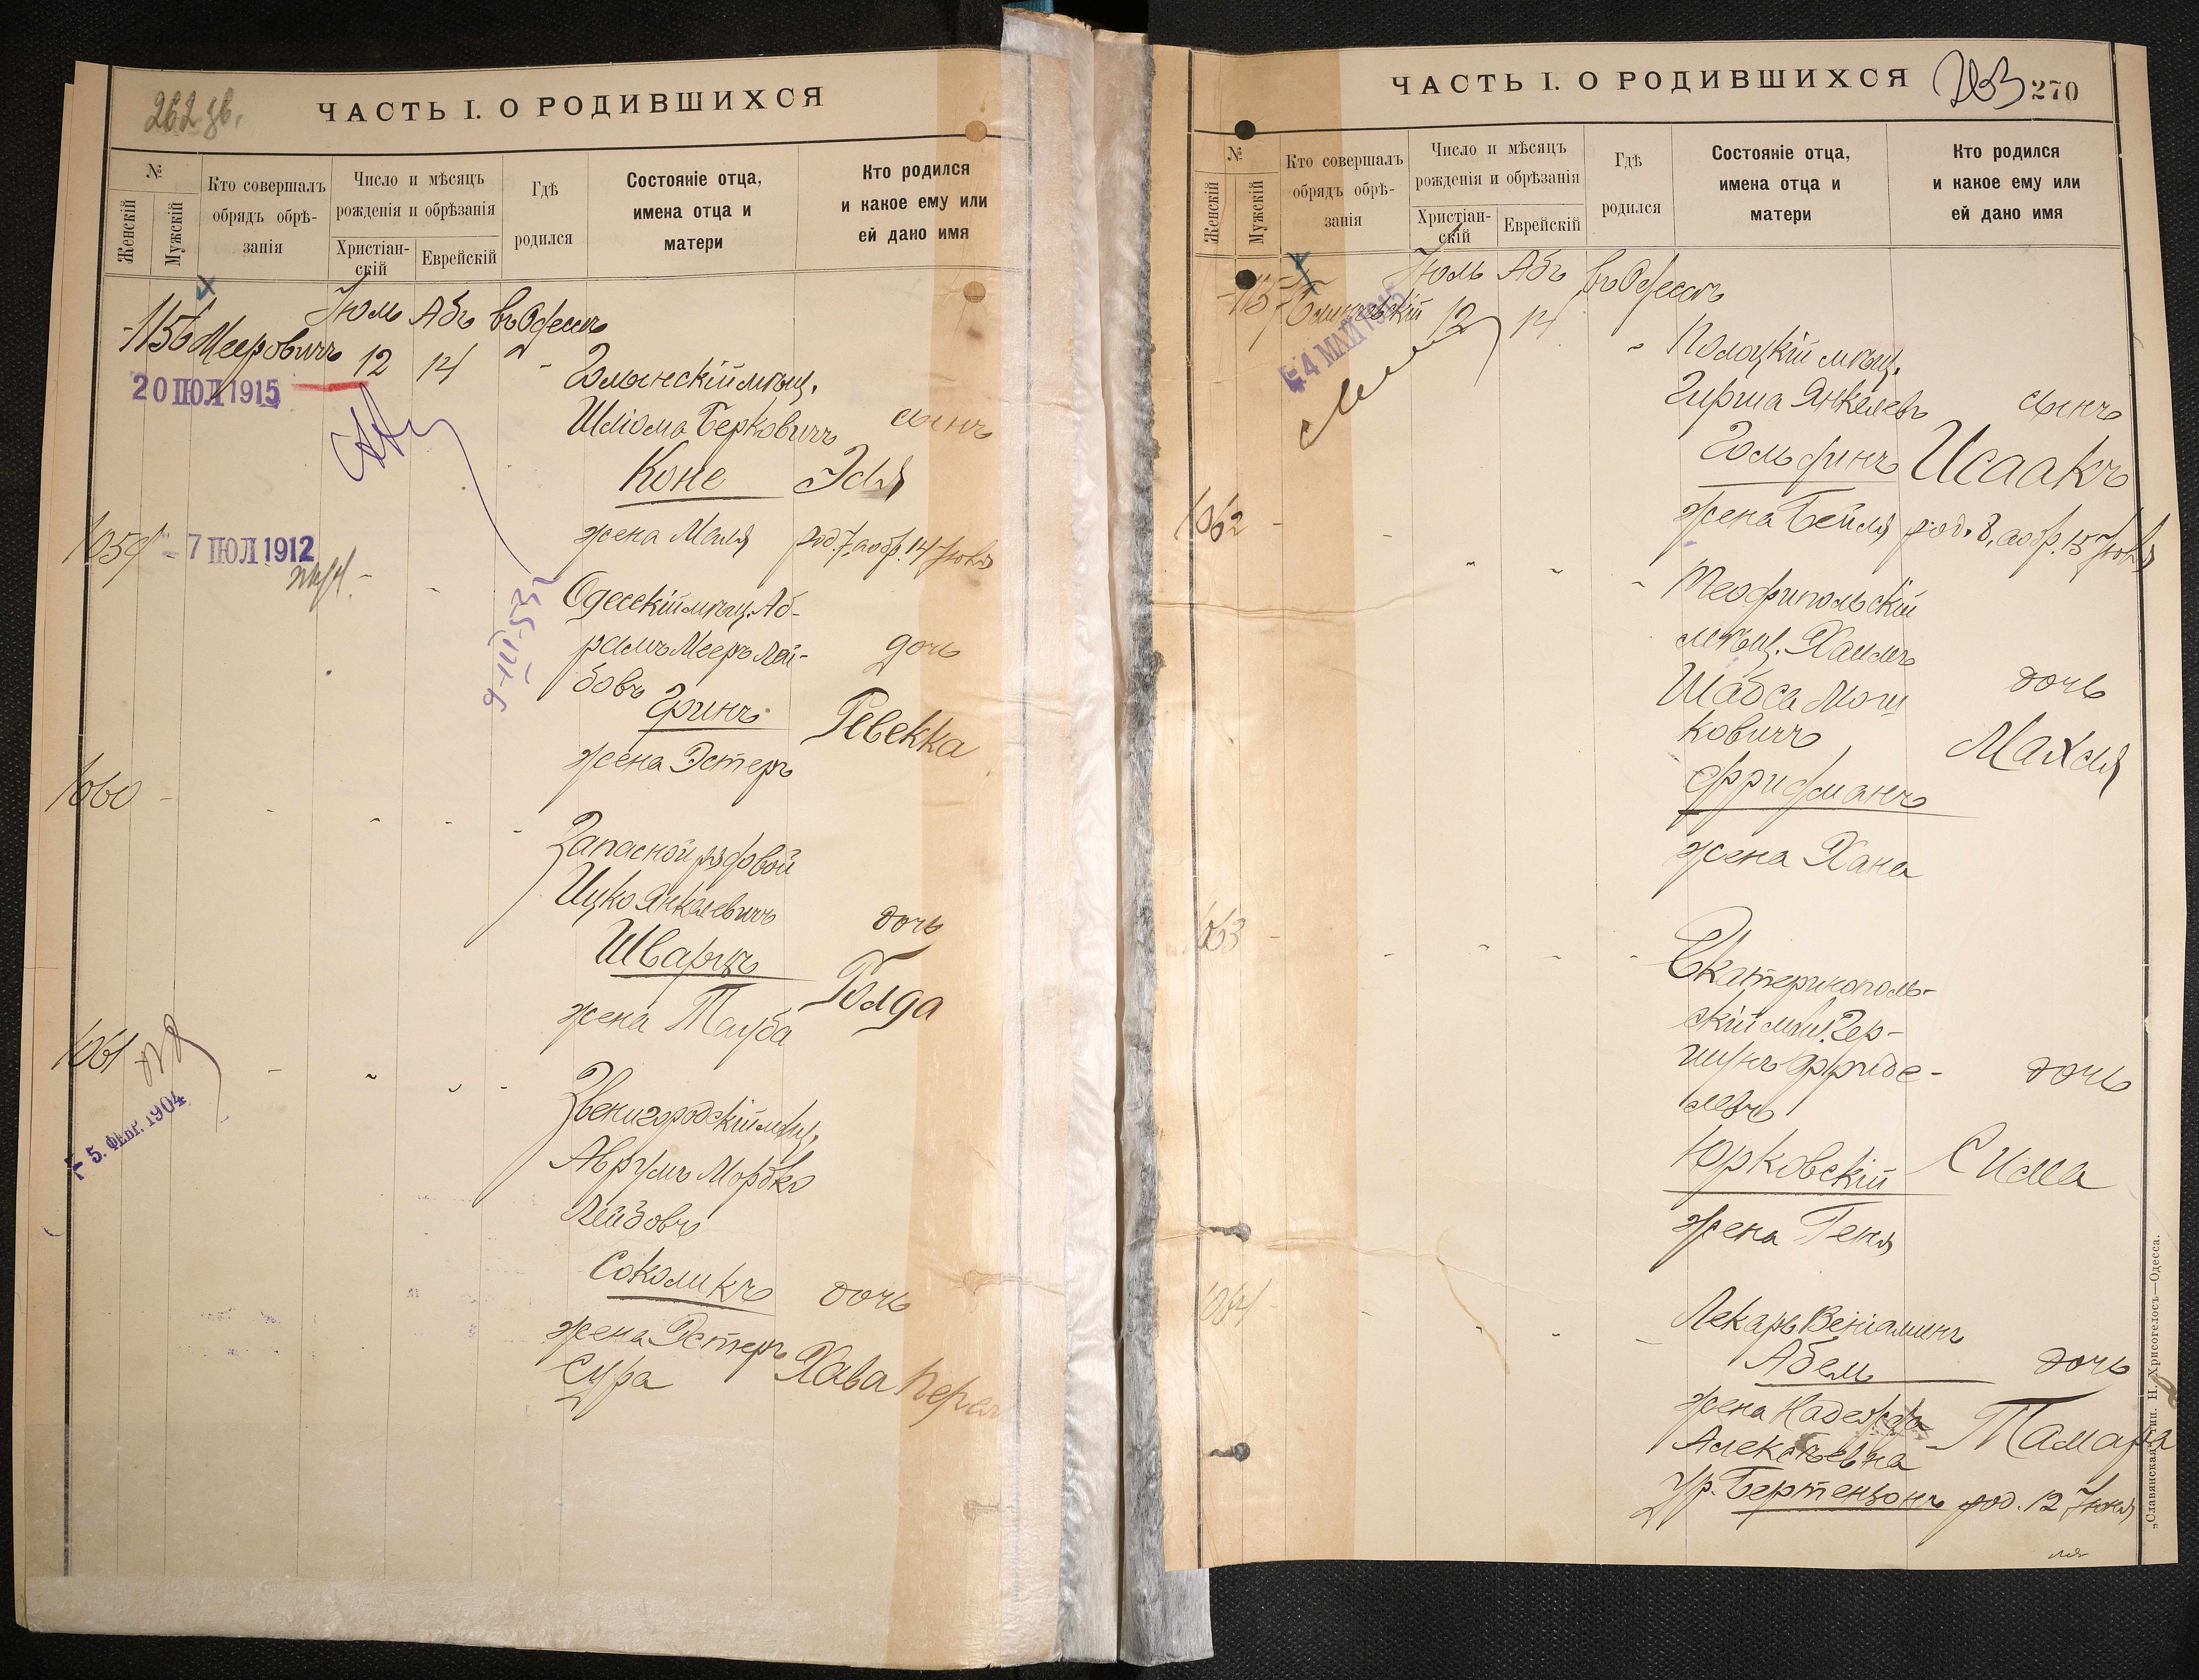 262 зв.
ЧАСТЬ I. О РОДИВШИХСЯ
№
Женскій
Мужской
Кто совершалъ обрядъ обрѣ-занія
Число и мѣсяцъ рожденія и обрѣзанія
Христіан-скій
Еврейскій
Гдѣ родился
Состояніе отца, имена отца и матери
Кто родился и какое ему или ей дано имя
Іюль Абъ въ Одессѣ
Мееровичъ 12 14
20 ІЮЛ 1915
мѣщ.
Шліома Берковичъ сынъ
Коне Эля
жена Маля род. 7, а обр. 14 Іюля
1059 - 7 ІЮЛ 1912
9-III-53
Одесскій мѣщ. Аб-
рамъ Мееръ Лей-
бовъ дочь
Гринъ Ревекка
жена Эстеръ
1060
Запасной рядовой
Ицко Янкелевичъ дочь
Шварцъ Голда
жена Тауба
1061
5. ФЕВГ. 1904
Звенигородскій мѣщ.
Аврумъ Мордко
Лейбовъ
Соколикъ дочь
жена Эстеръ Хава Перля
Сура
ЧАСТЬ I. О РОДИВШИХСЯ
263 270
№
Женскій
Мужской
Кто совершалъ обрядъ обрѣ-занія
Число и мѣсяцъ рожденія и обрѣзанія
Христіан-скій
Еврейскій
Гдѣ родился
Состояніе отца, имена отца и матери
Кто родился и какое ему или ей дано имя
Іюль Абъ въ Одессѣ
12 14
4 МАЙ 1915
Полоцкій мѣщ.
Гирша Янкелевъ сынъ
Гольфинъ Исаакъ
жена Бейля род. 8, а обр. 15 Іюля
1062
Теофипольскій
мѣщ. Хаимъ
Шабса Мош
ковичъ дочь
Фридманъ Махля
жена Хана
1063
Екатеринополь-
скій мѣщ. Гер-
шунъ Фриде-
левъ дочь
Юрковскій Сима
жена Геня
1064
Лекарь Веніаминъ
Абель дочь
жена Надежда Тамара
Алексѣевна
ур. Бертензонъ род. 12 Іюня
„Славянская“ тип. Н. Хрисогелосъ—Одесса.